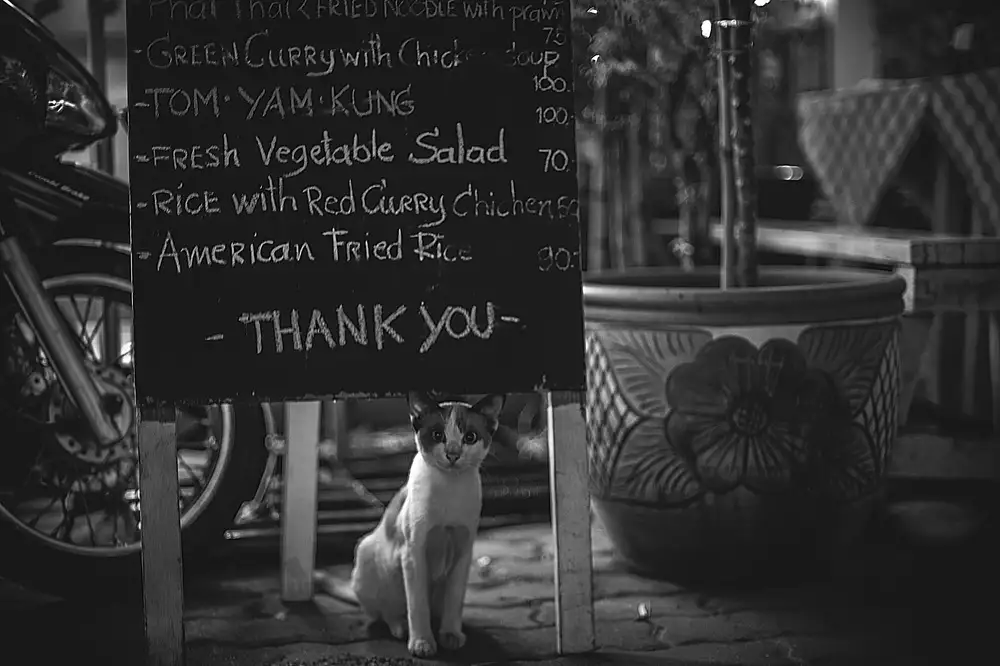 Phai Thai < FRIED NOODLE with prawn
75
- GREEN CURRY with Chick Soup
100.
- TOM·YAM·KUNG 100.
- FRESH Vegetable Salad 70.
- RICE with Red Curry Chichen
- American Fried Rice 90.-
- THANK YOU -